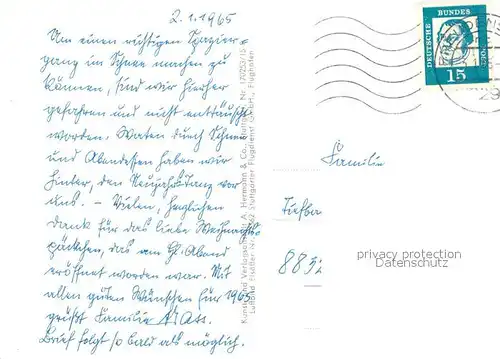 2.1.1965
Um einen richtigen Spazier-
gang im Schnee machen zu
können, sind wir hierher
gefahren und nicht enttäuscht
worden. Waten durch Schnee
und Abendessen haben wir
hinter, den Neujahrstag vor
uns. - Vielen, herzlichen
Dank für das liebe Weihnachts-
päckchen, das am Hl. Abend
eröffnet worden war. Mit
allen guten Wünschen für 1965
grüßt Familie
Brief folgt so bald als möglich.
Kunst und Verlagsanstalt A. Hermann & Co., Stuttgart
Stuttgarter Flugdienst GmbH., Flughafen
DEUTSCHE BUNDESPOST
15
Familie
Tiefba
8832
privacy protection
Datenschutz